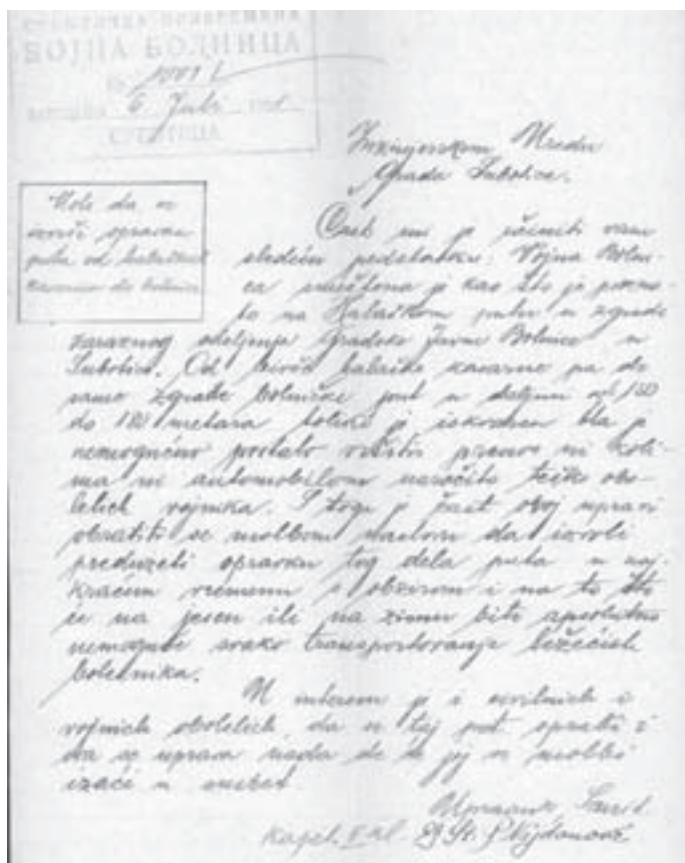 ВОЈНА БОЛНИЦА
6 Juli
СУБОТИЦА
Inžinjerskom Uredu
Grada Subotice.
Mole da se
izvrši opravka
puta od
do bolnice
Čast mi je učiniti vam
sledeću predstavku: Vojna Bolni-
ca smeštena je kao što je pozna-
to na Halaškom putu u zgradi
zaraznog odeljenja Gradske Javne Bolnice u
Subotici. Od bivše halaške kasarne pa do
same zgrade bolničke put u daljini od 150
do 180 metara toliko je iskvaren da je
nemogućno postalo vršiti prenos ni koli-
ma ni automobilom naročito teško obo-
lelih vojnika. S toga je čast ovoj upravi
obratiti se molbom naslovu da izvoli
preduzeti opravku tog dela puta u naj-
kraćem vremenu s obzirom i na to što
će na jesen ili na zimu biti apsolutno
nemoguće svako transportovanje ležećih
bolesnika.
U interesu je i civilnih i
vojnih obolelih da se taj put opravi i
da se uprava nada da će joj se molbi
izaći u susret.
Upravnik